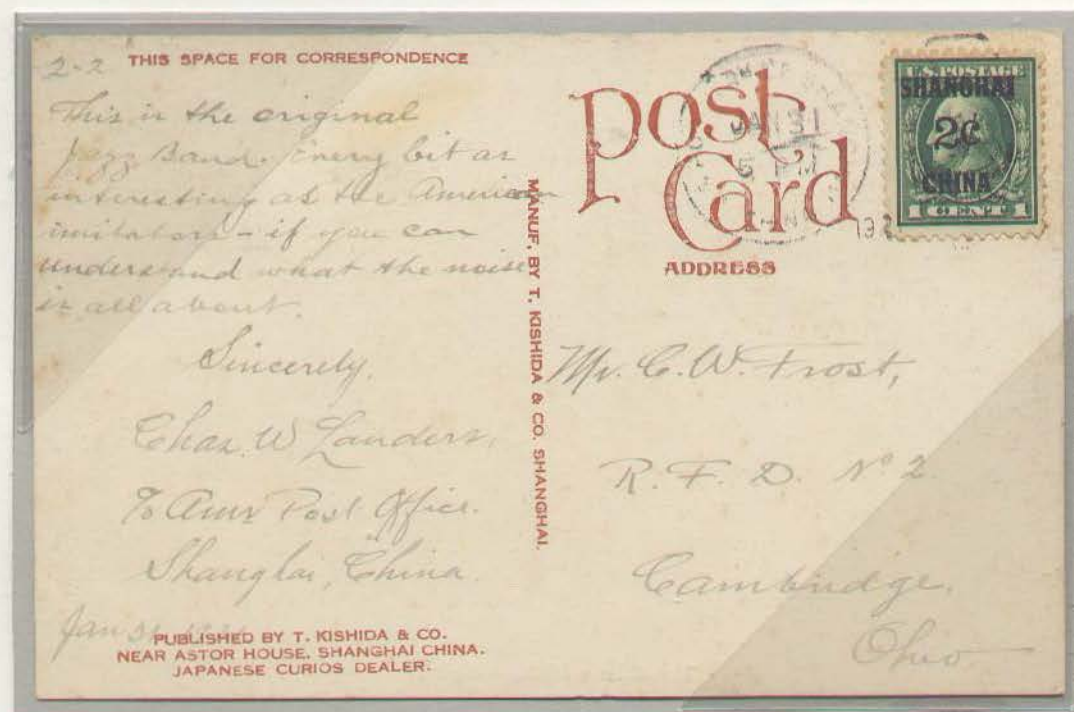 2-2
THIS SPACE FOR CORRESPONDENCE
This is the original
Jazz Band. Every bit as
interesting as the American
imitators - if you can
understand what the noise
is all about.
Sincerely,
Chas. W Landers,
℅ Amr Post Office.
Shanghai, China.
Jan 31
PUBLISHED BY T. KISHIDA & CO.
NEAR ASTOR HOUSE, SHANGHAI CHINA.
JAPANESE CURIOS DEALER.
MANUF. BY T. KISHIDA & CO. SHANGHAI.
Post
Card
ADDRESS
JAN 31
5 PM
U.S. POSTAGE
SHANGHAI
2¢
CHINA
1 CENT 1
Mr. C. W. Frost,
R. F. D. Nº 2
Cambridge,
Ohio